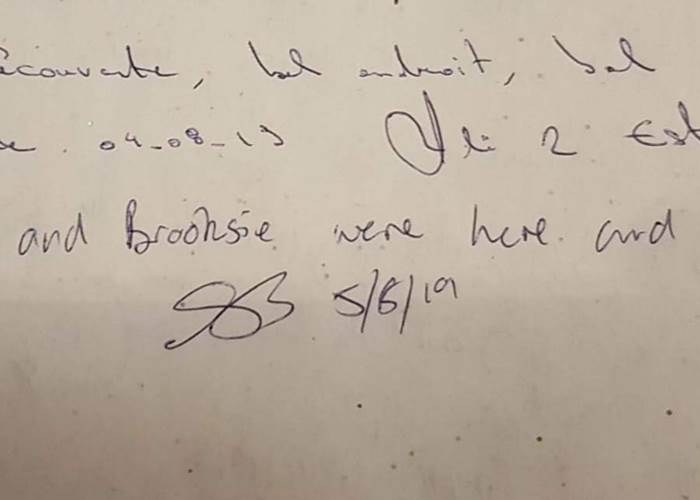 écouverte, bel endroit, bel
04-08-19
and Brooksie were here and
5/8/19